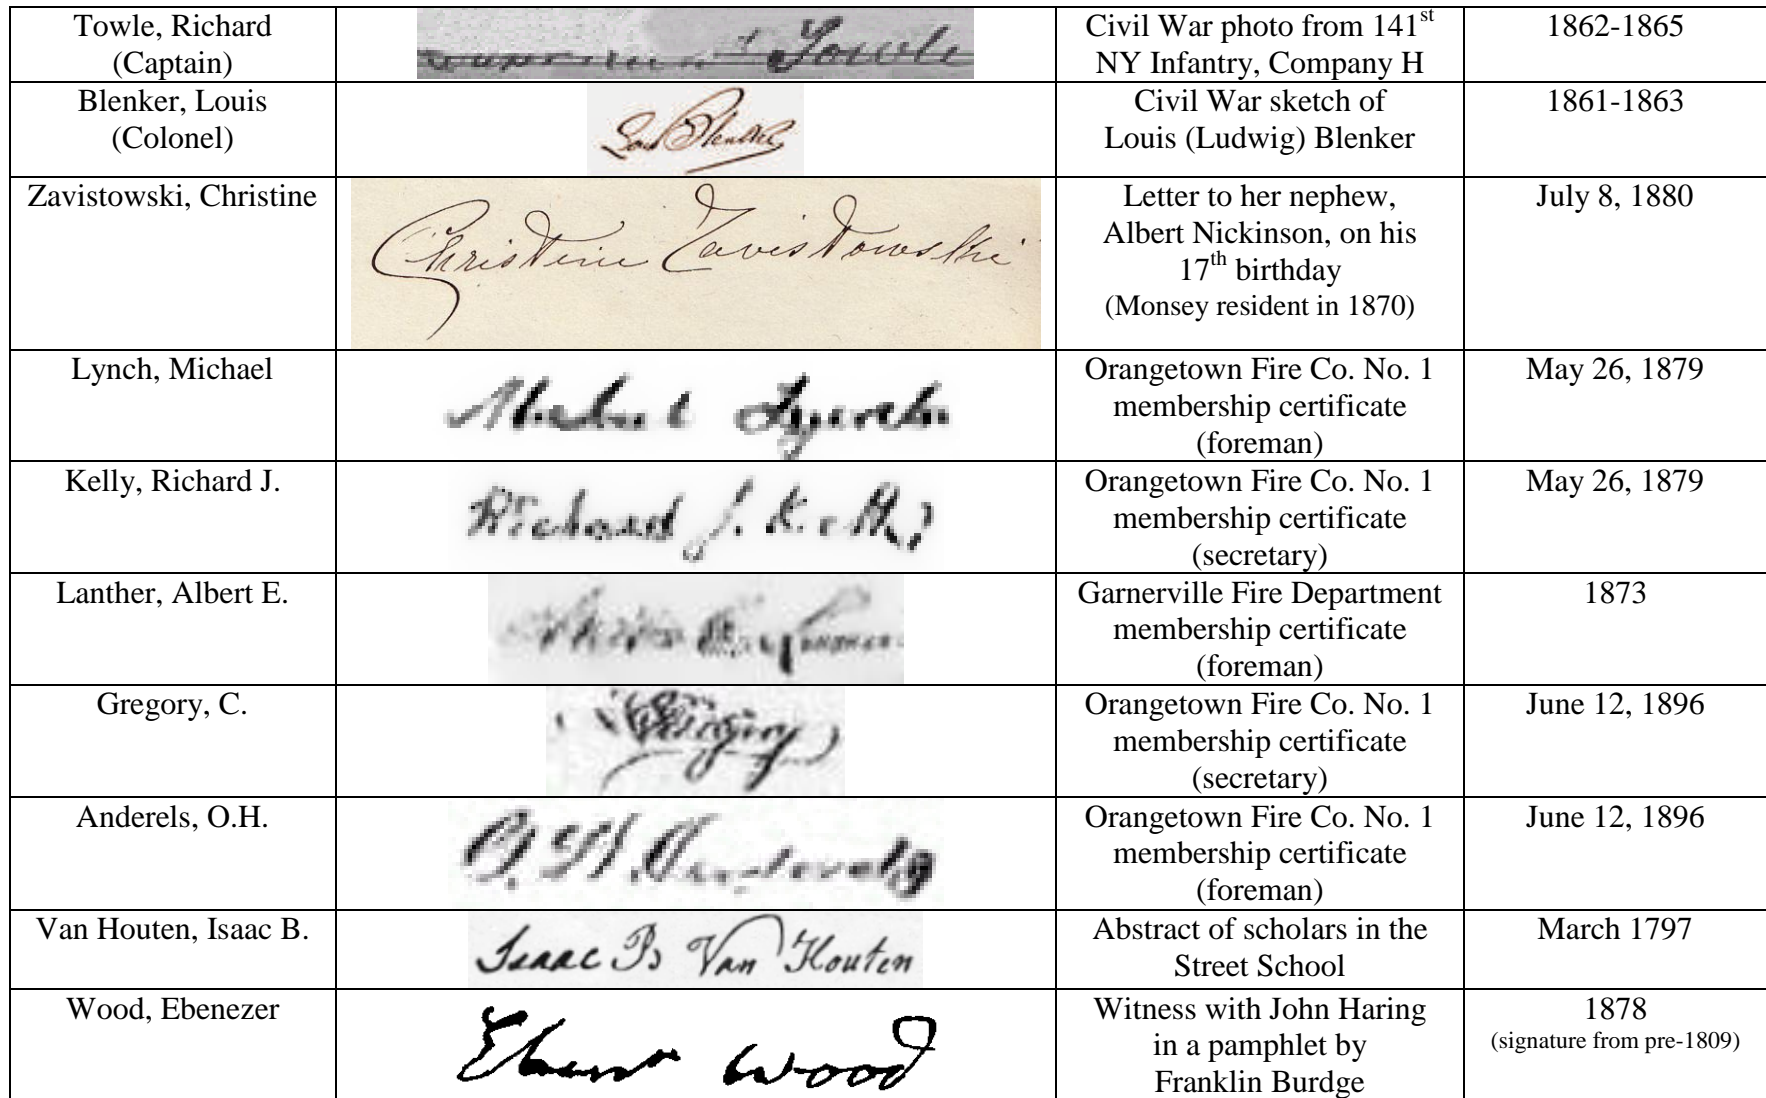 Towle, Richard
(Captain)
Towle
Civil War photo from 141st
NY Infantry, Company H
1862-1865
Blenker, Louis
(Colonel)
Louis Blenker
Civil War sketch of
Louis (Ludwig) Blenker
1861-1863
Zavistowski, Christine
Christine Zavistowski
Letter to her nephew,
Albert Nickinson, on his
17th birthday
(Monsey resident in 1870)
July 8, 1880
Lynch, Michael
Michael Lynch
Orangetown Fire Co. No. 1
membership certificate
(foreman)
May 26, 1879
Kelly, Richard J.
Richard J. Kelly
Orangetown Fire Co. No. 1
membership certificate
(secretary)
May 26, 1879
Lanther, Albert E.
Garnerville Fire Department
membership certificate
(foreman)
1873
Gregory, C.
Gregory
Orangetown Fire Co. No. 1
membership certificate
(secretary)
June 12, 1896
Anderels, O.H.
O. H.
Orangetown Fire Co. No. 1
membership certificate
(foreman)
June 12, 1896
Van Houten, Isaac B.
Isaac B Van Houten
Abstract of scholars in the
Street School
March 1797
Wood, Ebenezer
Ebenr Wood
Witness with John Haring
in a pamphlet by
Franklin Burdge
1878
(signature from pre-1809)